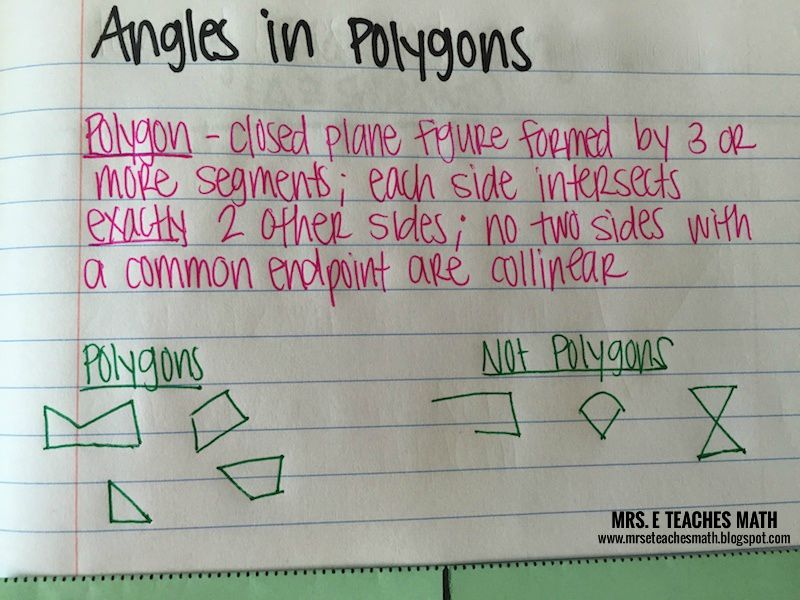 Angles in Polygons
Polygon - closed plane figure formed by 3 or
more segments; each side intersects
exactly 2 other sides; no two sides with
a common endpoint are collinear
Polygons
Not Polygons
MRS. E TEACHES MATH
www.mrseteachesmath.blogspot.com